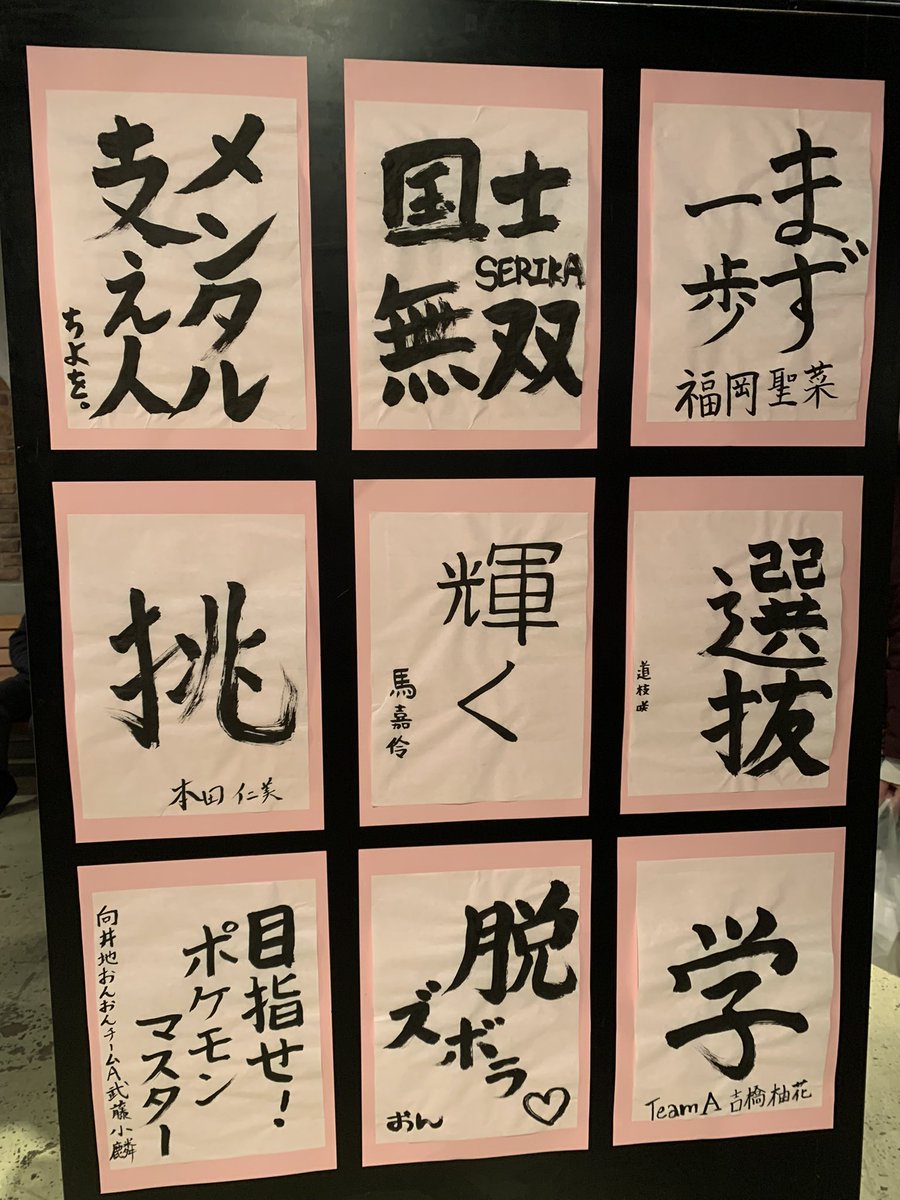 メンタル
支え人
ちよを。
国士
無双
SERIKA
まず
一歩
福岡聖菜
挑
本田仁美
輝く
馬嘉伶
選抜
道枝咲
目指せ！
ポケモン
マスター
向井地おんおんチームA武藤小麟
脱
ズボラ♡
おん
学
Team A 吉橋柚花